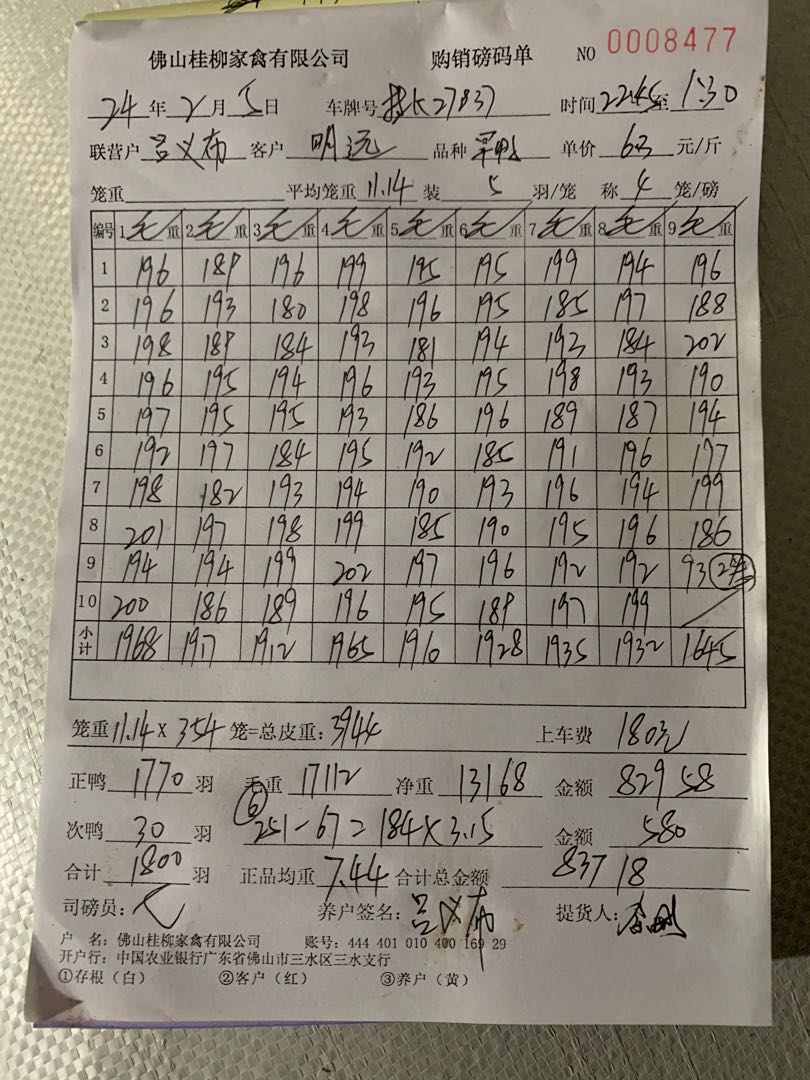 佛山桂柳家禽有限公司 购销磅码单 NO 0008477
24 年 2 月 5 日 车牌号 27837 时间 22:45 至 1:30
联营户 吕义布 客户 明远 品种 单价 6.3 元/斤
笼重 平均笼重 11.14 装 5 羽/笼 称 4 笼/磅
编号 1 毛 重 2 毛 重 3 毛 重 4 毛 重 5 毛 重 6 毛 重 7 毛 重 8 毛 重 9 毛 重
1 196 189 196 199 195 195 199 194 196
2 196 193 180 198 196 195 185 197 188
3 198 189 184 193 181 194 193 184 202
4 196 195 194 196 193 195 198 193 190
5 197 195 195 193 186 196 189 187 194
6 192 197 184 195 192 185 191 196 197
7 198 182 193 194 190 193 196 194 199
8 201 197 198 199 185 190 195 196 186
9 194 194 199 202 197 196 192 192 93
10 200 186 189 196 195 189 197 199
小计 1968 1917 1912 1965 1910 1928 1935 1932 1645
笼重 11.14 X 354 笼=总皮重: 3944 上车费 180元
正鸭 1770 羽 毛重 17112 净重 13168 金额 82958
次鸭 30 羽 ⑥ 251-67=184×3.15 金额 580
合计 1800 羽 正品均重 7.44 合计总金额 83718
司磅员: 养户签名: 吕义布 提货人:
户 名: 佛山桂柳家禽有限公司 账号: 444 401 010 400 169 29
开户行: 中国农业银行广东省佛山市三水区三水支行
①存根（白） ②客户（红） ③养户（黄）